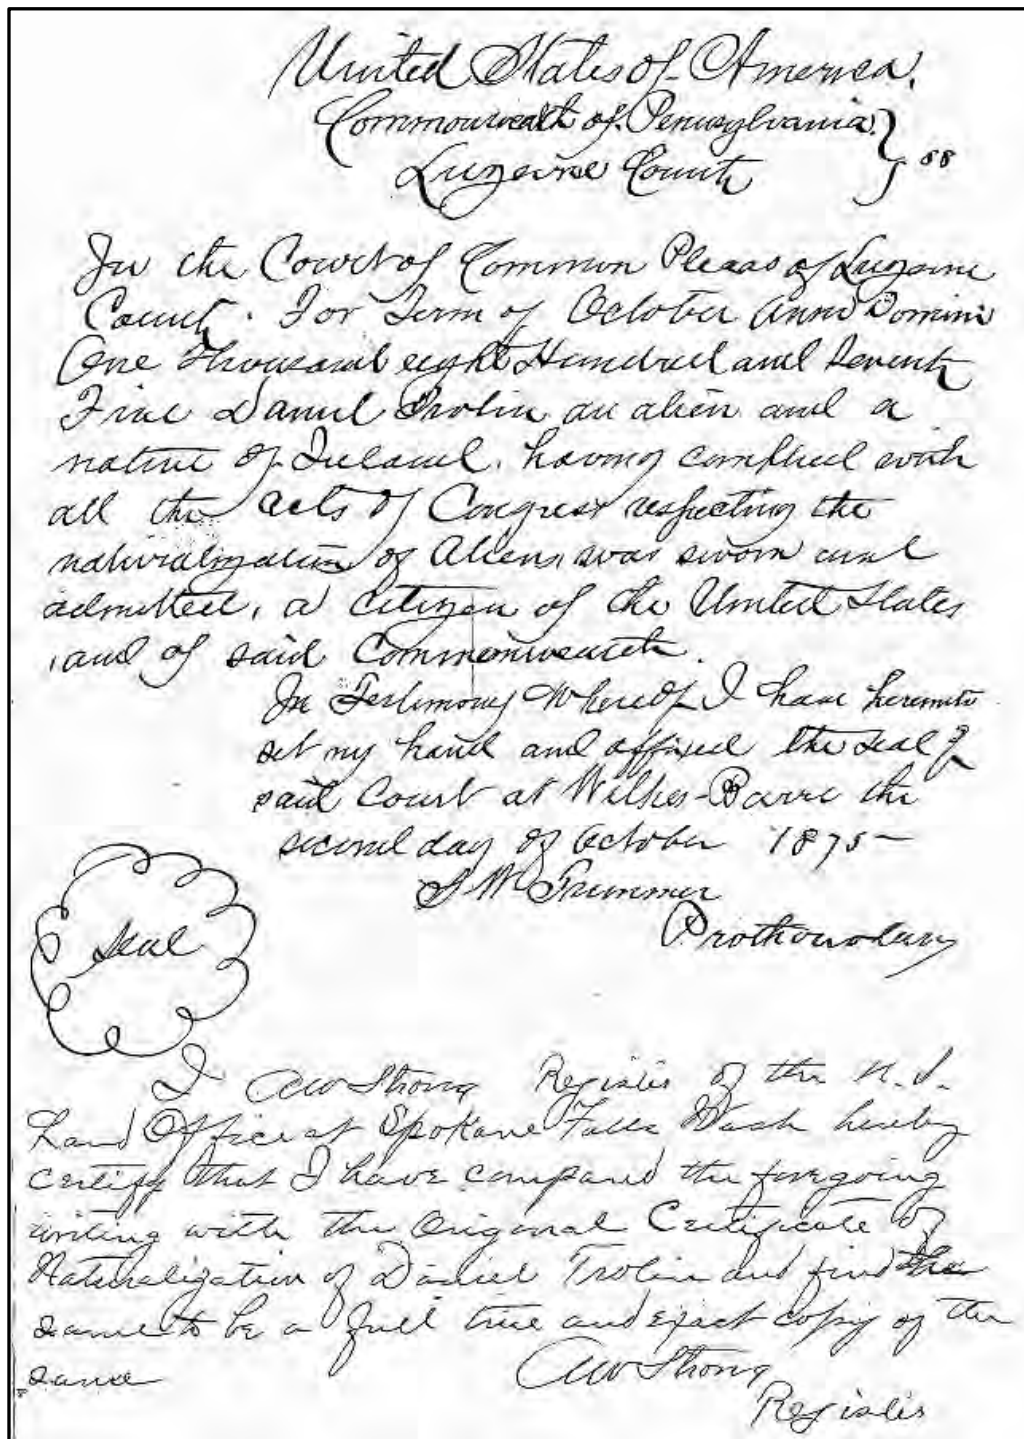 United States of America.
Commonwealth of Pennsylvania } ss
Luzerne County
In the Court of Common Pleas of Luzerne
County. For Term of October Anno Domini
One thousand eight Hundred and Seventy
Five Daniel Trolin an alien and a
native of Ireland, having complied with
all the acts of Congress respecting the
naturalization of Aliens, was sworn and
admitted, a citizen of the United States
and of said Commonwealth.
In Testimony Whereof I have hereunto
set my hand and affixed the seal of
said Court at Wilkes-Barre the
second day of October 1875-
Prothonotary
Seal
I AW Strong Register of the U.S.
Land Office at Spokane Falls Wash hereby
certify that I have compared the foregoing
writing with the Original Certificate of
Naturalization of Daniel Trolin and find the
same to be a full true and exact copy of the
same
AW Strong
Register